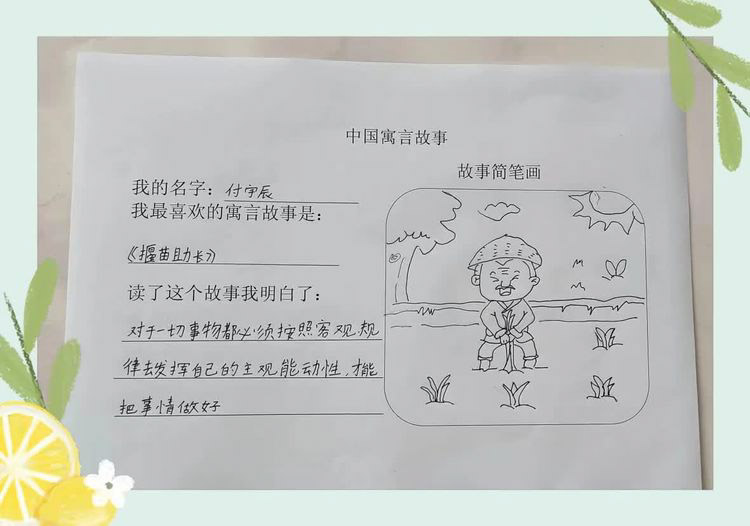 中国寓言故事
故事简笔画
我的名字：付宇辰
我最喜欢的寓言故事是：
《揠苗助长》
读了这个故事我明白了：
对于一切事物都必须按照客观规
律去发挥自己的主观能动性，才能
把事情做好